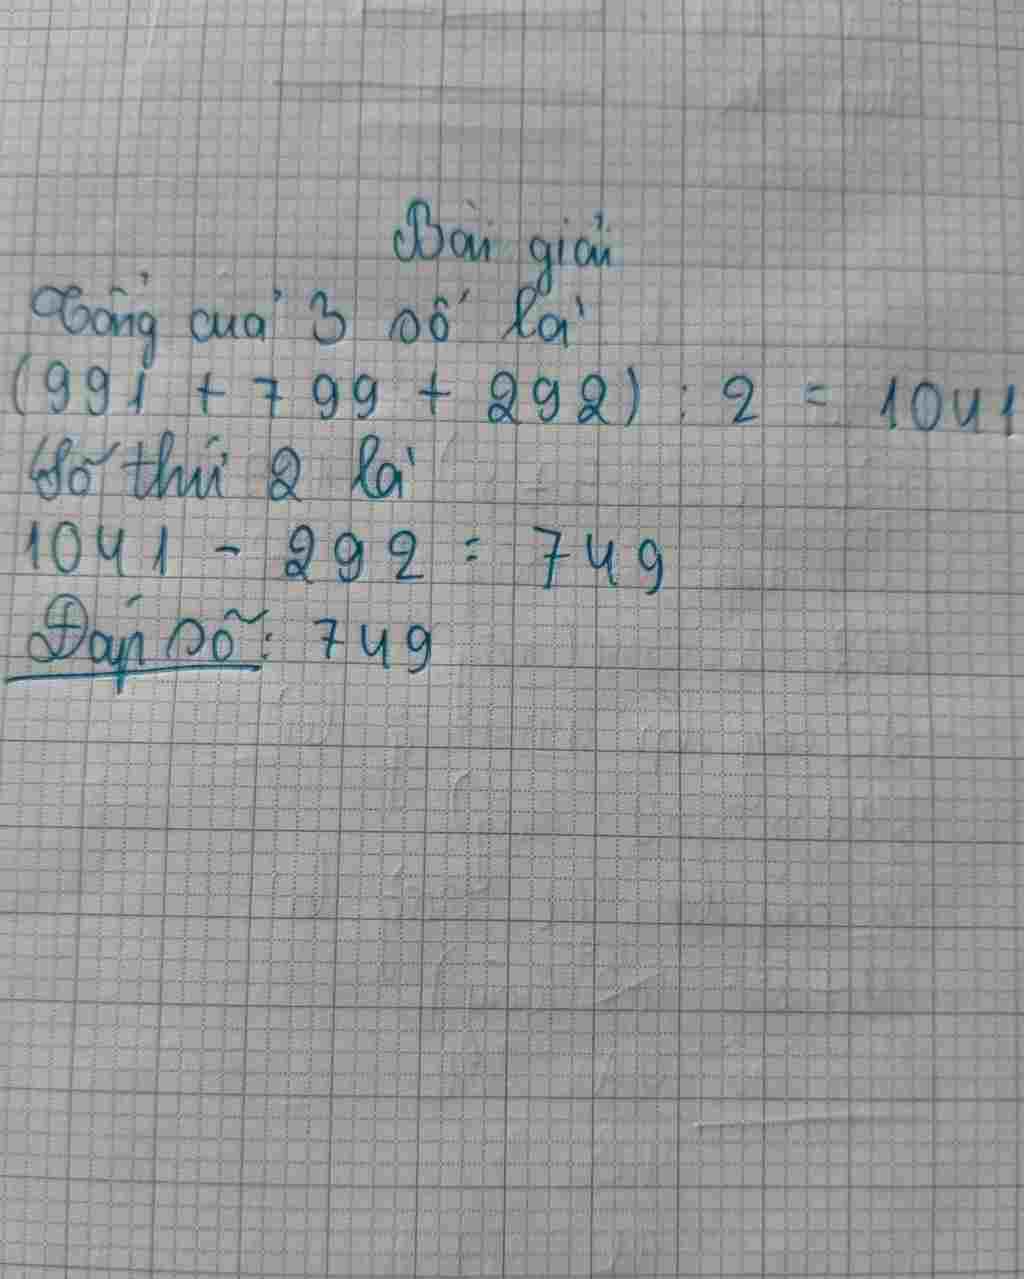 Bài giải
Tổng của 3 số là
(991 + 799 + 292) : 2 = 1041
Số thứ 2 là
1041 - 292 = 749
Đáp số: 749